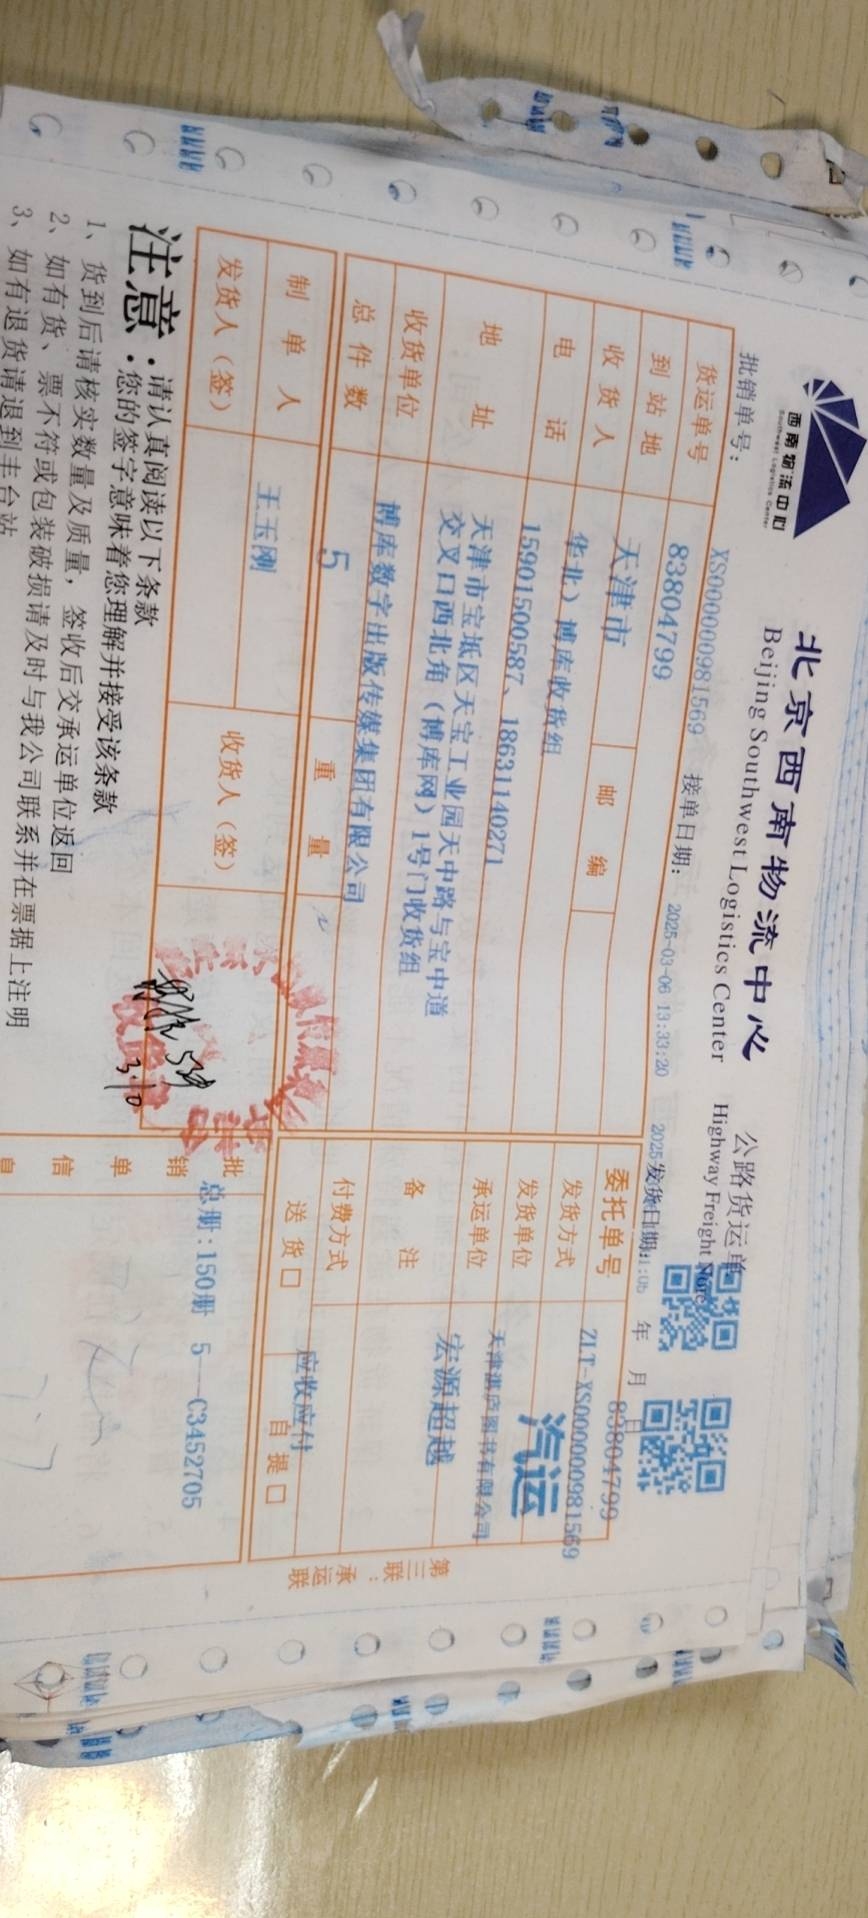 西南物流中心
Southwest Logistics Center
北京西南物流中心
Beijing Southwest Logistics Center
公路货运单
Highway Freight Note
批销单号: XS0000000981569 接单日期: 2025-03-06 13:33:20 2025 发货日期: 年 月 日
货运单号 83804799
委托单号 83804799
ZLT-XS0000000981569
到站地 天津市 邮编
发货方式 汽运
收货人 华北）博库收货组
发货单位 天津湛庐图书有限公司
电话 15901500587、18631140271
承运单位 宏源超越
地址 天津市宝坻区天宝工业园天中路与宝中道
交叉口西北角（博库网）1号门收货组
备注
收货单位 博库数字出版传媒集团有限公司
付费方式 应收应付
总件数 5 重量
送货□ 自提□
制单人 王玉刚
发货人（签） 收货人（签）
3.10
批销单信息
总册:150册 5—C3452705
第三联：承运联
注意：请认真阅读以下条款
您的签字意味着您理解并接受该条款
1、货到后请核实数量及质量，签收后交承运单位返回
2、如有货、票不符或包装破损请及时与我公司联系并在票据上注明
3、如有退货请退到丰台站